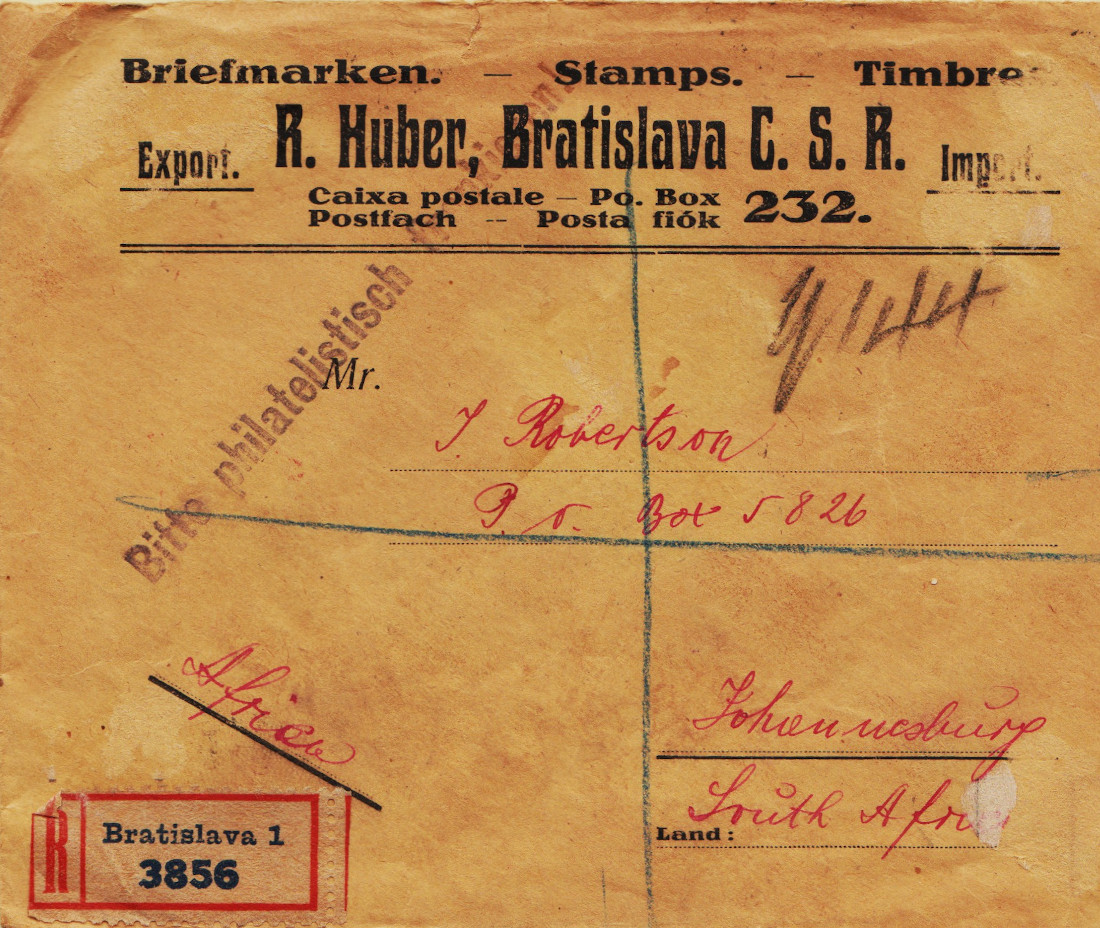 Briefmarken. — Stamps. — Timbre
R. Huber, Bratislava C. S. R.
Export.
Import.
Caixa postale — Po. Box 232.
Postfach -- Posta fiók
Bitte philatelistisch
144
Mr.
J Robertson
P. o. Box 5826
Africa
Johannesburg
South Afri
Land:
R
Bratislava 1
3856